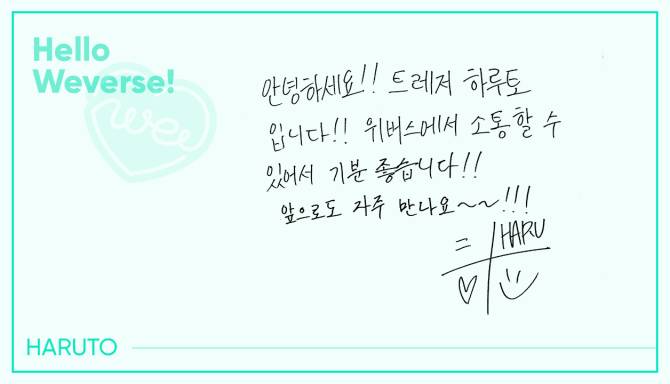 Hello
Weverse!
wev
안녕하세요!! 트레저 하루토
입니다!! 위버스에서 소통할 수
있어서 기분 좋습니다!!
앞으로도 자주 만나요~~!!!
= HARU
HARUTO